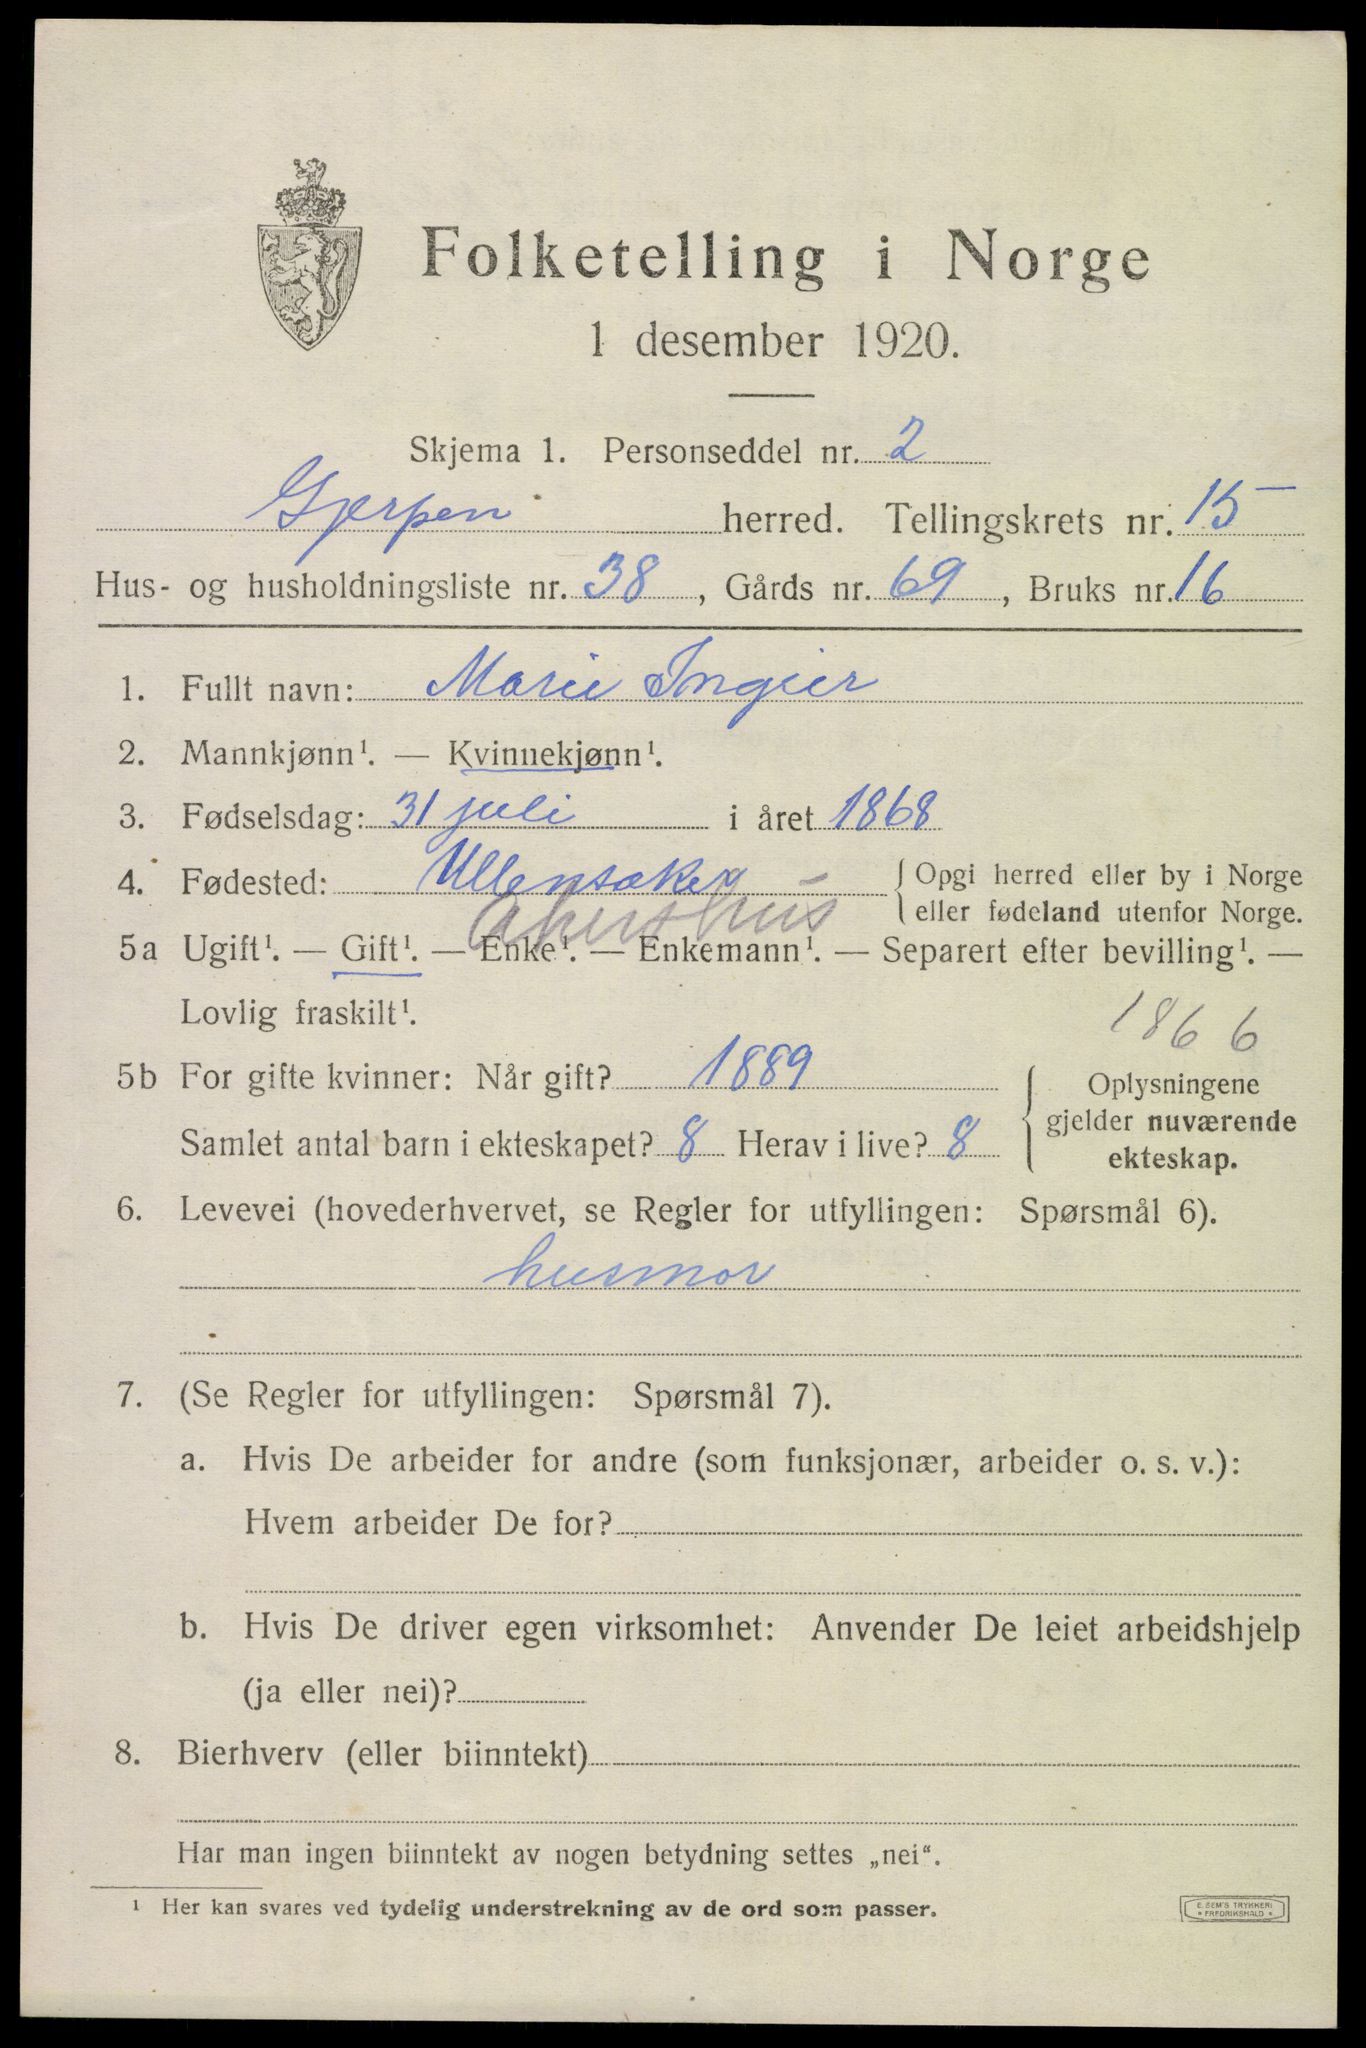 Folketelling i Norge
1 desember 1920.
Skjema 1. Personseddel nr. 2
Gjerpen herred. Tellingskrets nr. 15
Hus- og husholdningsliste nr. 38, Gårds nr. 69, Bruks nr. 16
1. Fullt navn: Marie Ingier
2. Mannkjønn¹. — Kvinnekjønn¹.
3. Fødselsdag: 31 juli i året 1868
4. Fødested: Ullensaker { Opgi herred eller by i Norge
eller fødeland utenfor Norge.
Akershus
5a Ugift¹. — Gift¹. — Enke¹. — Enkemann¹. — Separert efter bevilling¹. —
Lovlig fraskilt¹.
1866
5b For gifte kvinner: Når gift? 1889
Samlet antal barn i ekteskapet? 8 Herav i live? 8
{ Oplysningene
gjelder nuværende
ekteskap.
6. Levevei (hovederhvervet, se Regler for utfyllingen: Spørsmål 6).
husmor
7. (Se Regler for utfyllingen: Spørsmål 7).
a. Hvis De arbeider for andre (som funksjonær, arbeider o. s. v.):
Hvem arbeider De for?
b. Hvis De driver egen virksomhet: Anvender De leiet arbeidshjelp
(ja eller nei)?
8. Bierhverv (eller biinntekt)
Har man ingen biinntekt av nogen betydning settes „nei“.
¹ Her kan svares ved tydelig understrekning av de ord som passer.
E. SEM'S TRYKKERI
* FREDRIKSHALD *